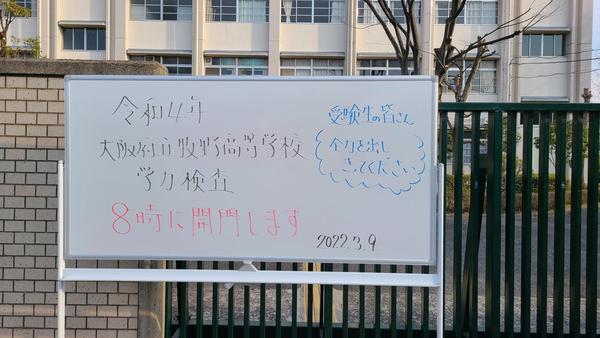 令和4年
大阪府立牧野高等学校
学力検査
8時に開門します
受験生の皆さん
全力を出し
きってください
2022.3.9